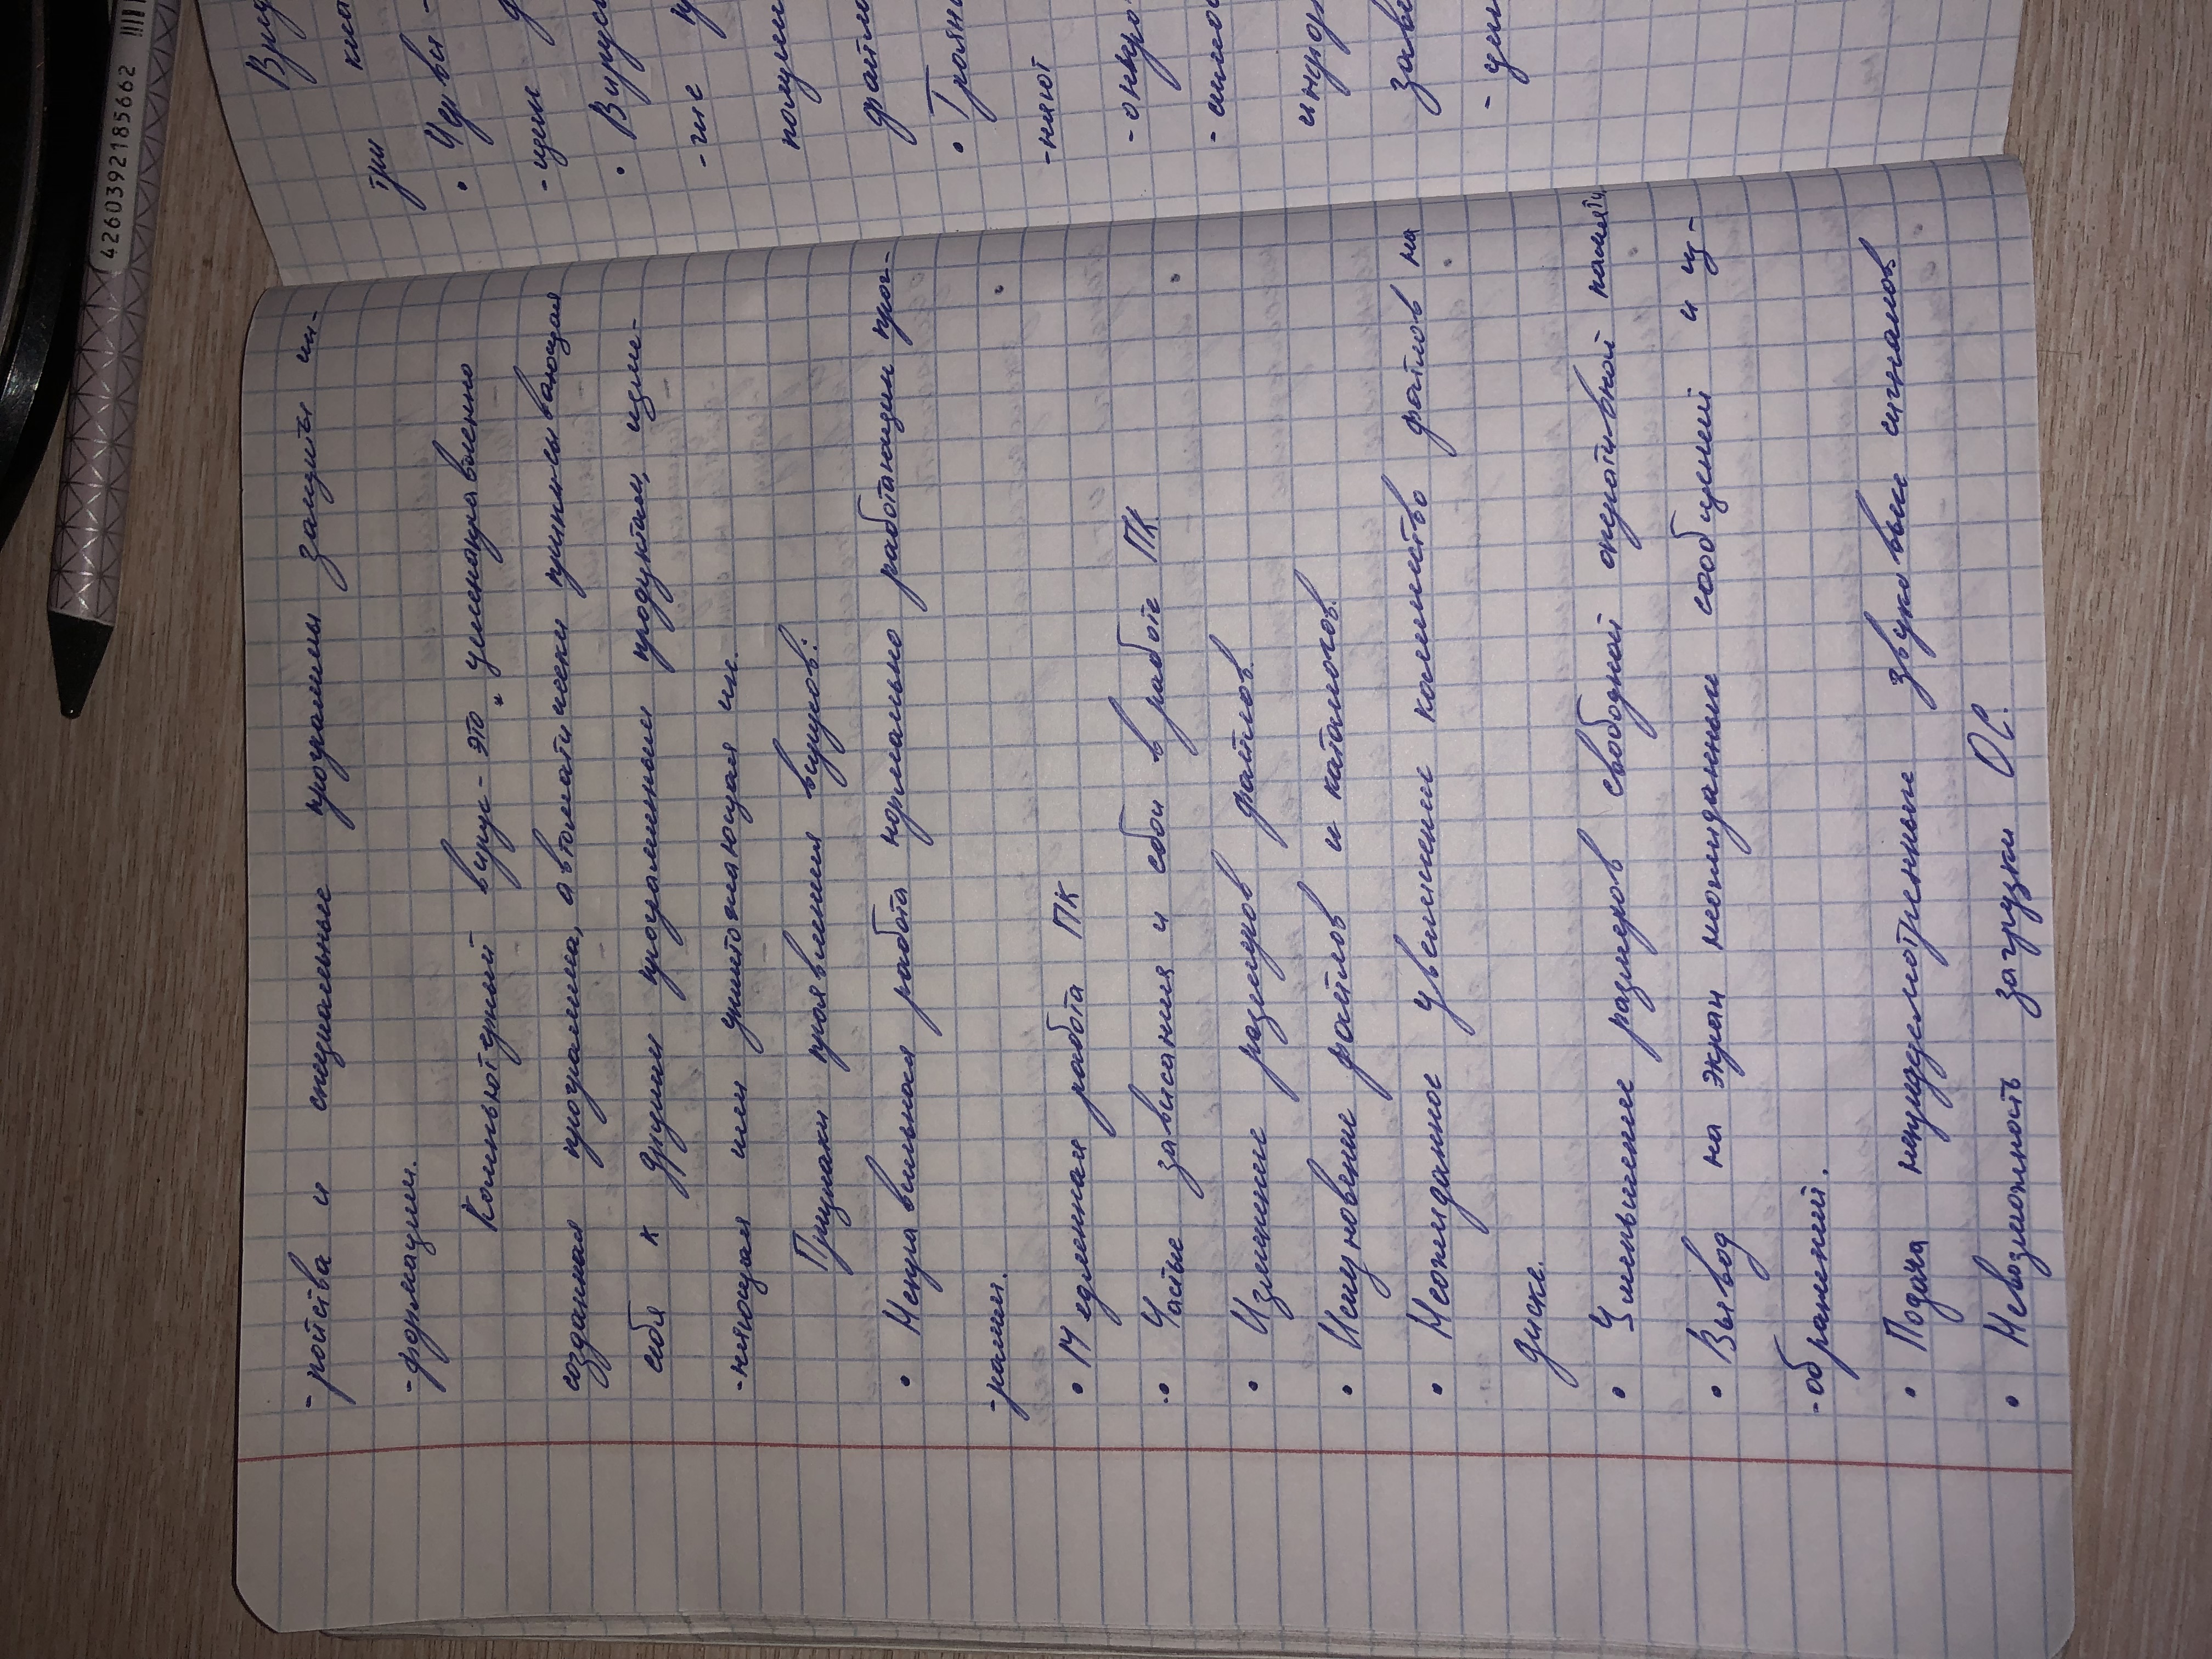 -ройства и специальные программы защиты ин-
-формации.
Компьютерный вирус - это целенаправленно
созданная программа, автоматически приписывающая
себя к другим программным продуктам, изме-
-няющая или уничтожающая их.
Признаки проявления вирусов:
• Неправильная работа нормально работающих прог-
-рамм.
• Медленная работа ПК
• Частые зависания и сбои в работе ПК
• Изменение размеров файлов
• Исчезновение файлов и каталогов.
• Неожиданное увеличение количество файлов на
диске.
• Уменьшение размеров свободной оперативной памяти
• Вывод на экран неожиданных сообщений и из-
-ображений.
• Подача непредусмотренных звуковых сигналов
• Невозможность загрузки ОС.
Вред
три
• Черви -
-щие
• Вирусы
-ие
получ
файл
• Троян
-няют
завис
4260392185662